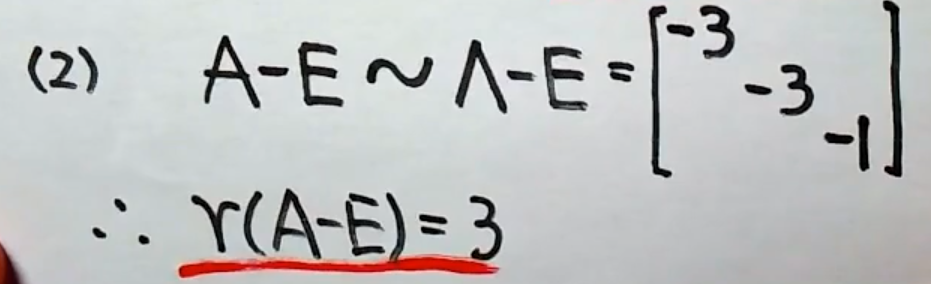 (2) A-E~Λ-E=[-3 -3 -1]
∴ r(A-E)=3